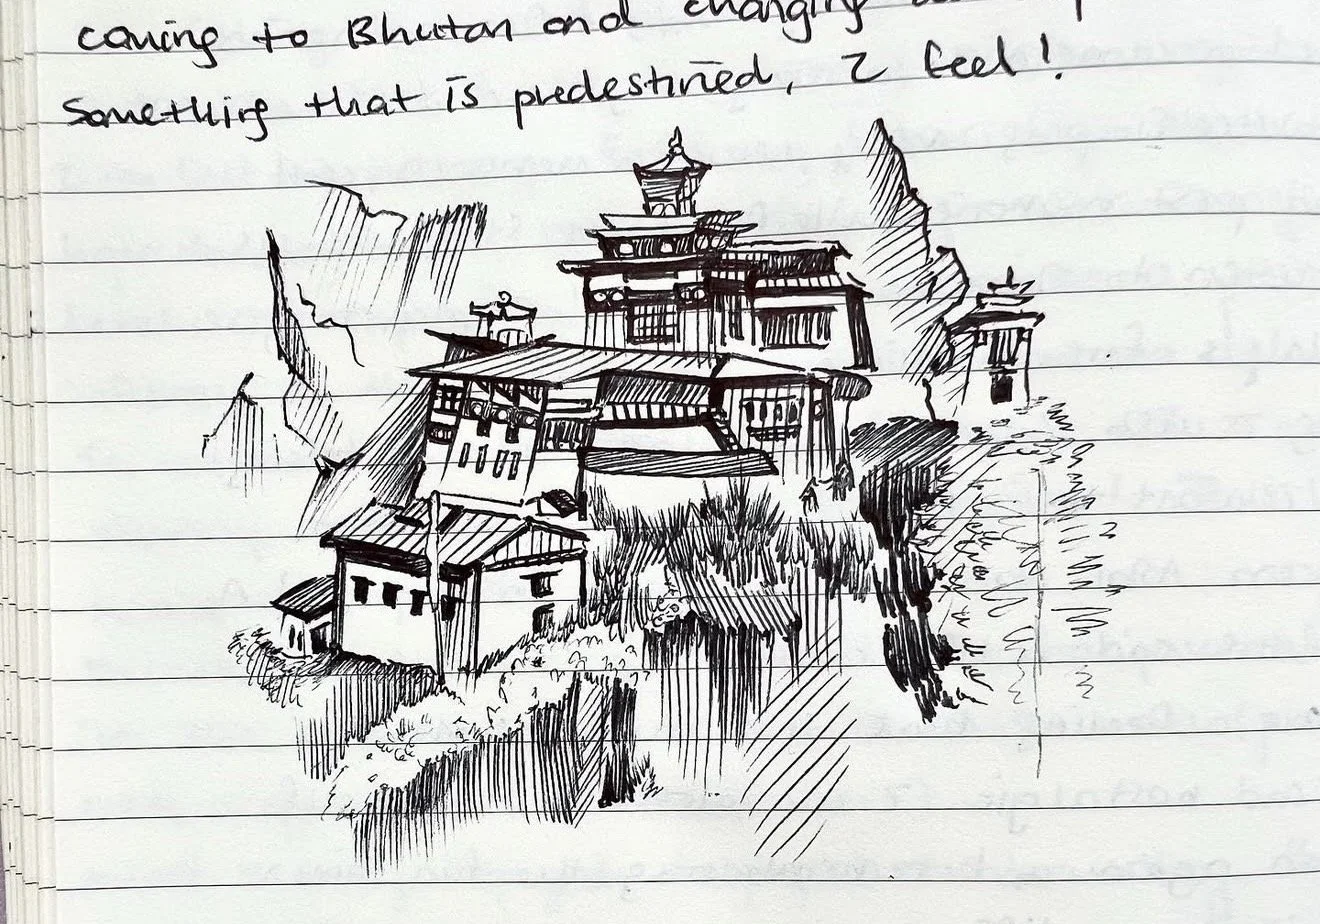 coming to Bhutan and changing
something that is predestined, I feel!